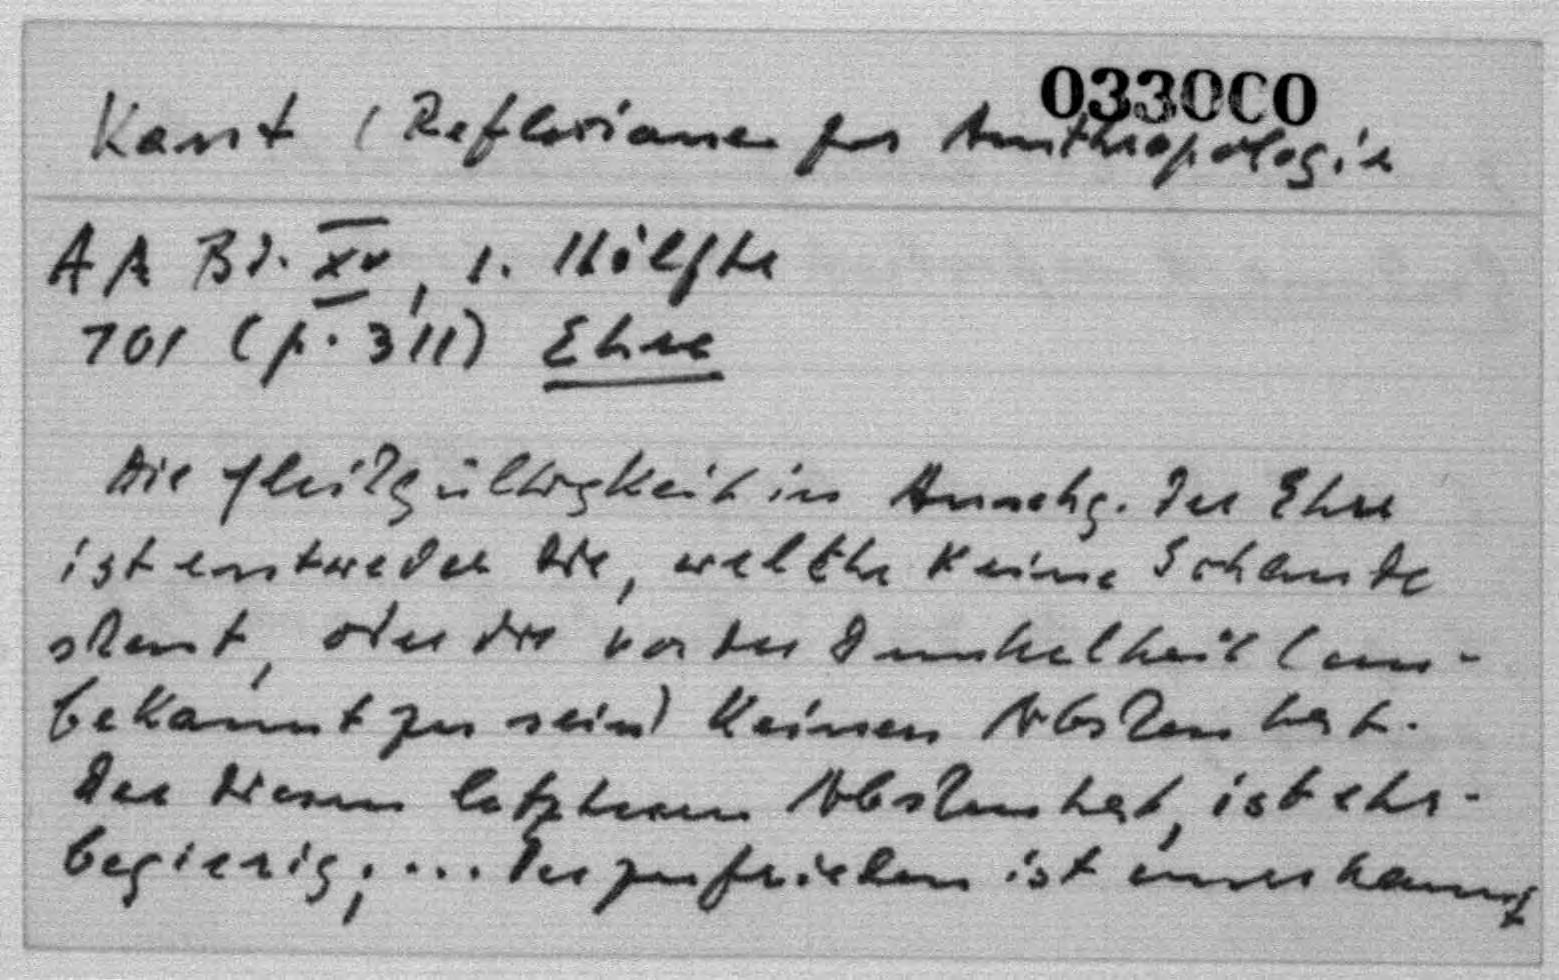 033000
Kant (Reflexionen zur Anthropologie
AA Bd. XV, 1. Hälfte
701 (p. 311) Ehre
Die Gleichgültigkeit in Ansehg. der Ehre
ist entweder die, welche keine Schande
scheut, oder die vor der Dunkelheit (un-
bekannt zu sein) keinen Abscheu hat.
Der diesen letzteren Abscheu hat, ist ehr-
begierig; ... der zufrieden ist unerkannt